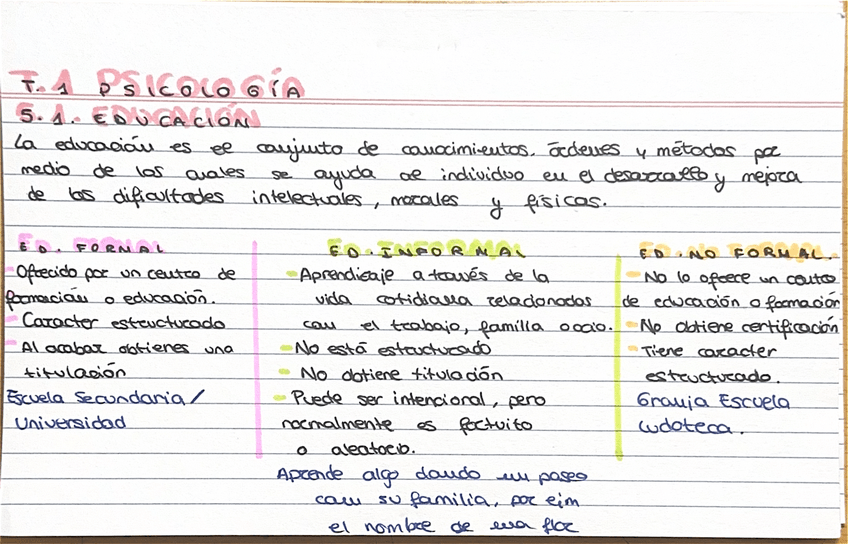 T.1 PSICOLOGÍA
S.1. EDUCACIÓN
La educación es el conjunto de conocimientos, órdenes y métodos por
medio de los cuales se ayuda al individuo en el desarrollo y mejora
de las dificultades intelectuales, morales y físicas.
ED. FORMAL
- Ofrecido por un centro de
formación o educación.
- Caracter estructurado
- Al acabar obtienes una
titulación
Escuela Secundaria /
Universidad
ED. INFORMAL
- Aprendizaje a través de la
vida cotidiana relacionados
con el trabajo, familia o ocio.
- No está estructurado
- No obtiene titulación
- Puede ser intencional, pero
normalmente es fortuito
o aleatorio.
Aprende algo dando un paseo
con su familia, por ejm
el nombre de una flor
ED. NO FORMAL.
- No lo ofrece un centro
de educación o formación
- No obtiene certificación
- Tiene caracter
estructurado.
Granja Escuela
Ludoteca.